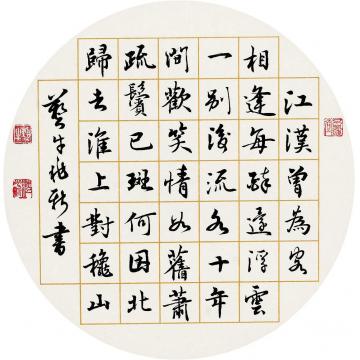 江漢曾為客
相逢每醉還浮雲
一別後流水十年
間歡笑情如舊蕭
疏鬢已斑何因北
歸去淮上對穐山
書